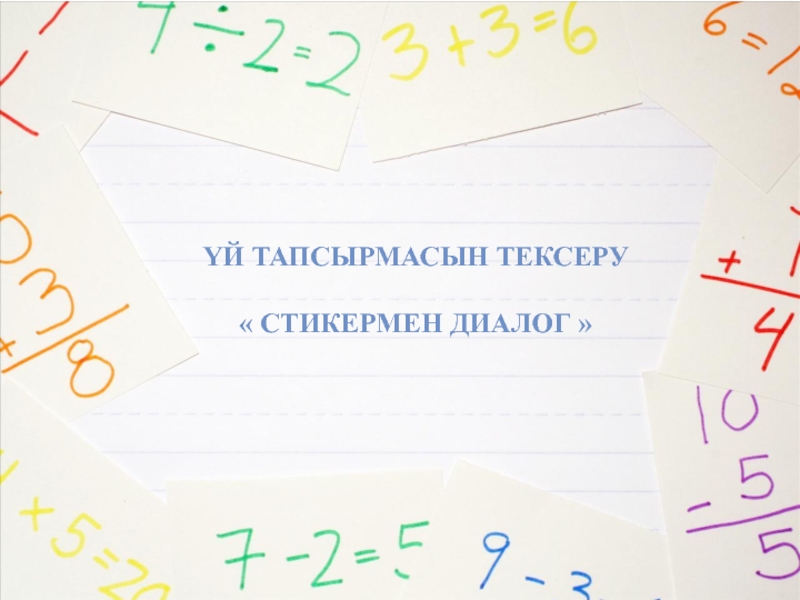 4÷2=2
3+3=6
6=12
ҮЙ ТАПСЫРМАСЫН ТЕКСЕРУ
« СТИКЕРМЕН ДИАЛОГ »
3
8
+
4
10
- 5
5
4×5=20
7-2=5
9-3